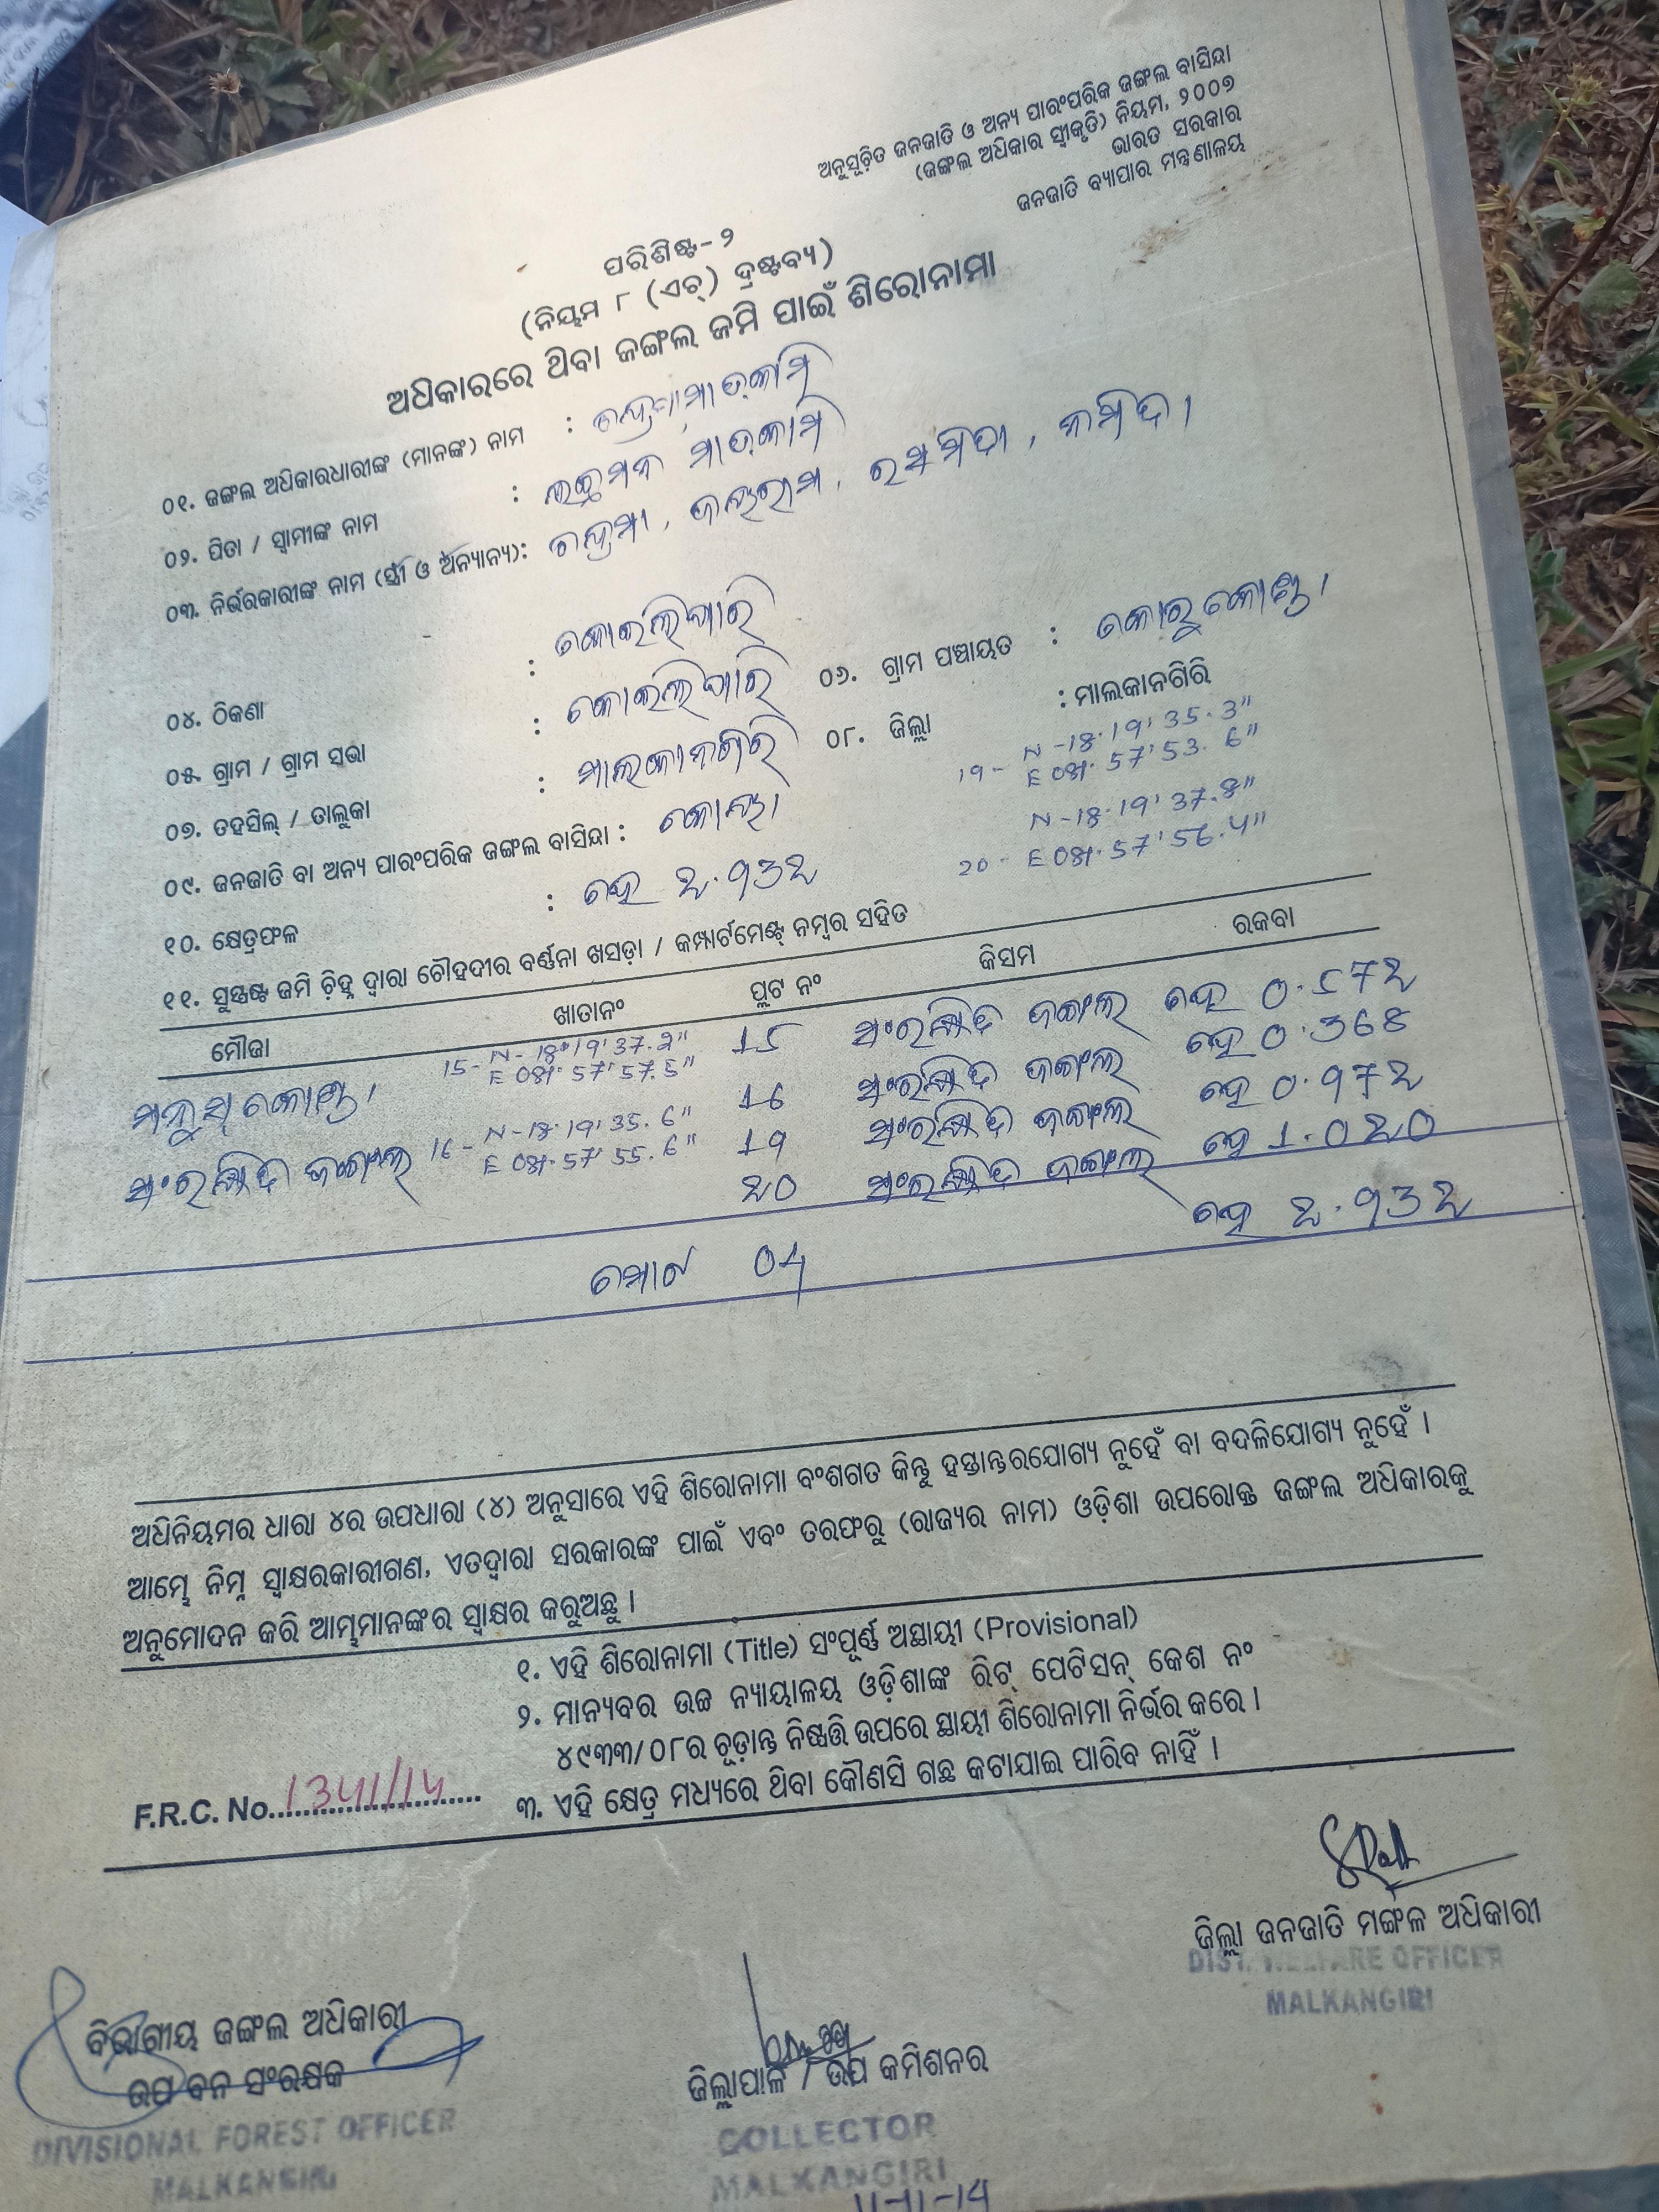 ଅନୁସୂଚିତ ଜନଜାତି ଓ ଅନ୍ୟ ପାରଂପରିକ ଜଙ୍ଗଲ ବାସିନ୍ଦା
(ଜଙ୍ଗଲ ଅଧିକାର ସ୍ୱୀକୃତି) ନିୟମ, ୨୦୦୭
ଭାରତ ସରକାର
ଜନଜାତି ବ୍ୟାପାର ମନ୍ତ୍ରଣାଳୟ
ପରିଶିଷ୍ଟ-୨
(ନିୟମ ୮ (ଏଚ୍) ଦ୍ରଷ୍ଟବ୍ୟ)
ଅଧିକାରରେ ଥିବା ଜଙ୍ଗଲ ଜମି ପାଇଁ ଶିରୋନାମା
୦୧. ଜଙ୍ଗଲ ଅଧିକାରଧାରୀଙ୍କ (ମାନଙ୍କ) ନାମ :
୦୨. ପିତା / ସ୍ୱାମୀଙ୍କ ନାମ : ଲଚ୍ଛମନ ମାଡ଼କାମି
୦୩. ନିର୍ଭରକାରୀଙ୍କ ନାମ (ସ୍ତ୍ରୀ ଓ ଅନ୍ୟାନ୍ୟ):
୦୪. ଠିକଣା : କୋଇଲିପାରି
୦୫. ଗ୍ରାମ / ଗ୍ରାମ ସଭା : କୋଇଲିପାରି ୦୬. ଗ୍ରାମ ପଞ୍ଚାୟତ : କୋରୁକୋଣ୍ଡା
୦୭. ତହସିଲ୍ / ତାଲୁକା : ମାଲକାନଗିରି ୦୮. ଜିଲ୍ଲା : ମାଲକାନଗିରି
୦୯. ଜନଜାତି ବା ଅନ୍ୟ ପାରଂପରିକ ଜଙ୍ଗଲ ବାସିନ୍ଦା : କୋୟା
19- N-18·19' 35·3"
E 081·57' 53·6"
N-18·19' 37·8"
20- E 081·57' 56·4"
୧୦. କ୍ଷେତ୍ରଫଳ : ହେ ୨.୩୨
୧୧. ସୁସ୍ପଷ୍ଟ ଜମି ଚିହ୍ନ ଦ୍ୱାରା ଚୌହଦୀର ବର୍ଣ୍ଣନା ଖସଡ଼ା / କମ୍ପାର୍ଟମେଣ୍ଟ୍ ନମ୍ବର ସହିତ
ମୌଜା ଖାତାନଂ ପ୍ଲଟ ନଂ କିସମ ରକବା
15- N-18·19' 37·2" 15 ସଂରକ୍ଷିତ ଜଙ୍ଗଲ ହେ
E 081·57' 57.5"
16 ସଂରକ୍ଷିତ ଜଙ୍ଗଲ ହେ 0.368
ସଂରକ୍ଷିତ ଜଙ୍ଗଲ 16- N-18·19' 35.6" 19 ସଂରକ୍ଷିତ ଜଙ୍ଗଲ ହେ
E 081·57' 55.6"
୨୦ ସଂରକ୍ଷିତ ଜଙ୍ଗଲ ହେ
ମୋଟ 04 ହେ
ଅଧିନିୟମର ଧାରା ୪ର ଉପଧାରା (୪) ଅନୁସାରେ ଏହି ଶିରୋନାମା ବଂଶଗତ କିନ୍ତୁ ହସ୍ତାନ୍ତରଯୋଗ୍ୟ ନୁହେଁ ବା ବଦଳିଯୋଗ୍ୟ ନୁହେଁ ।
ଆମ୍ଭେ ନିମ୍ନ ସ୍ୱାକ୍ଷରକାରୀଗଣ, ଏତଦ୍ୱାରା ସରକାରଙ୍କ ପାଇଁ ଏବଂ ତରଫରୁ (ରାଜ୍ୟର ନାମ) ଓଡ଼ିଶା ଉପରୋକ୍ତ ଜଙ୍ଗଲ ଅଧିକାରକୁ
ଅନୁମୋଦନ କରି ଆମ୍ଭମାନଙ୍କର ସ୍ୱାକ୍ଷର କରୁଅଛୁ ।
୧. ଏହି ଶିରୋନାମା (Title) ସଂପୂର୍ଣ୍ଣ ଅସ୍ଥାୟୀ (Provisional)
୨. ମାନ୍ୟବର ଉଚ୍ଚ ନ୍ୟାୟାଳୟ ଓଡ଼ିଶାଙ୍କ ରିଟ୍ ପେଟିସନ୍ କେଶ ନଂ
୪୯୩୩/୦୮ର ଚୂଡ଼ାନ୍ତ ନିଷ୍ପତ୍ତି ଉପରେ ସ୍ଥାୟୀ ଶିରୋନାମା ନିର୍ଭର କରେ ।
୩. ଏହି କ୍ଷେତ୍ର ମଧ୍ୟରେ ଥିବା କୌଣସି ଗଛ କଟାଯାଇ ପାରିବ ନାହିଁ ।
F.R.C. No. 1341/14
ଜିଲ୍ଲା ଜନଜାତି ମଙ୍ଗଳ ଅଧିକାରୀ
DIST. WELFARE OFFICER
MALKANGIRI
ବିଭାଗୀୟ ଜଙ୍ଗଲ ଅଧିକାରୀ
ଉପ ବନ ସଂରକ୍ଷକ
DIVISIONAL FOREST OFFICER
MALKANGIRI
ଜିଲ୍ଲାପାଳ / ଉପ କମିଶନର
COLLECTOR
MALKANGIRI
11-11-14